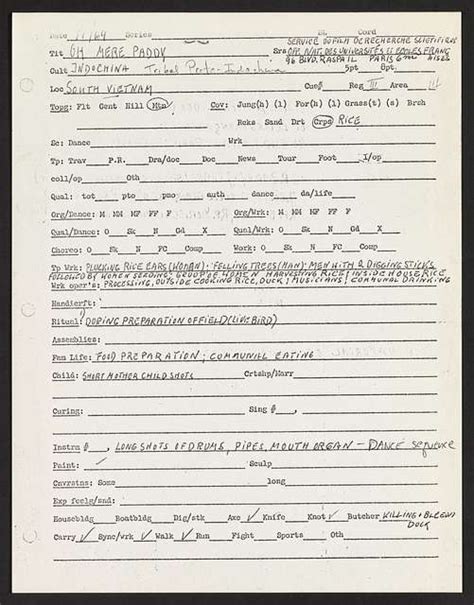 Date 11/64 Series El. Cord
SERVICE DU FILM DE RECHERCHE SCIENTIFIQUE
Tit OH MERE PADDY Srs OFF. NAT. DES UNIVERSITÉS ET ECOLES FRANÇAISES
96 BLVD. RASPAIL PARIS 6
Cult INDOCHINA Tribal Proto-Indochina 5pt 8pt.
Loc SOUTH VIETNAM Cue# Reg III Area
Topg: Flt Gent Hill Mtn Cov: Jung(h) (l) For(h) (l) Grass(t) (s) Brch
Rcks Sand Drt Crps RICE
Sc: Dance Wrk
Tp: Trav P.R. Dra/doc Doc News Tour Foot I/op
coll/op Oth
Qual: tot pto pno auth dance da/life
Org/Dance: M MM MF FF F Org/Wrk: M MM MF FF F
Qual/Dance: O Sk N Gd X Qual/Wrk: O Sk N Gd X
Choreo: O Sk N FC Comp Work: O Sk N FC Comp
Tp Wrk: PLUCKING RICE EARS (WOMAN); FELLING TREES (MAN); MEN WITH 2 DIGGING STICKS
FOLLOWED BY WOMEN SEEDING; GROUP OF WOMEN HARVESTING RICE; INSIDE HOUSE RICE
Wrk oper's: PROCESSING, OUTSIDE COOKING RICE, DUCK; MUSICIANS; COMMUNAL DRINKING
Handicrft:
Ritual: DOPING PREPARATION OF FIELD (LIVE BIRD)
Assemblies:
Fam Life: FOOD PREPARATION; COMMUNAL EATING
Child: SHORT MOTHER CHILD SHOTS Crtshp/Marr
Curing: Sing #
Instrm #, LONG SHOTS OF DRUMS, PIPES, MOUTH ORGAN - DANCE sequence
Paint: Sculp
Cnvrsins: Some long
Exp feels/snd:
Housebldg Boatbldg Dig/stk Axe ✓ Knife Knot ✓ Butcher KILLING + BLEEDING
DUCK
Carry ✓ Sync/wrk ✓ Walk ✓ Run Fight Sports Oth